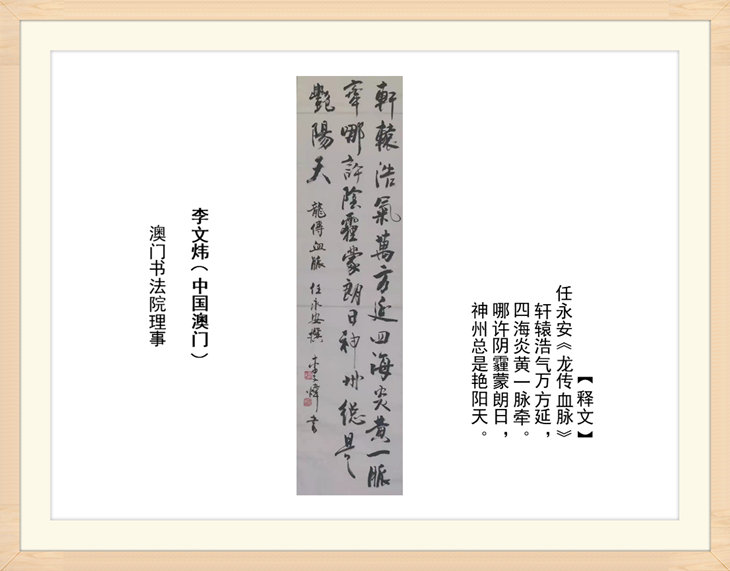 【释文】
任永安《龙传血脉》
轩辕浩气万方延，
四海炎黄一脉牵。
哪许阴霾蒙朗日，
神州总是艳阳天。
軒轅浩氣萬方延四海炎黄一脈
牽哪許陰霾蒙朗日神州總是
艷陽天
龍傳血脈 任永安撰 李文煒書
李文炜（中国澳门）
澳门书法院理事